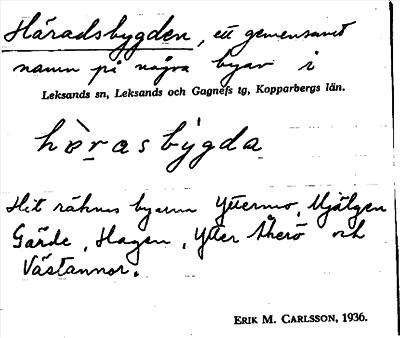 Häradsbygden, ett gemensamt
namn på några byar i
Leksands sn, Leksands och Gagnefs tg, Kopparbergs län.
hæ̀rasbýgda
Hit räknas byarna Yttermo, Hjälgen
Gärde, Hagen, Ytter Åkerö och
Västannor.
ERIK M. CARLSSON, 1936.